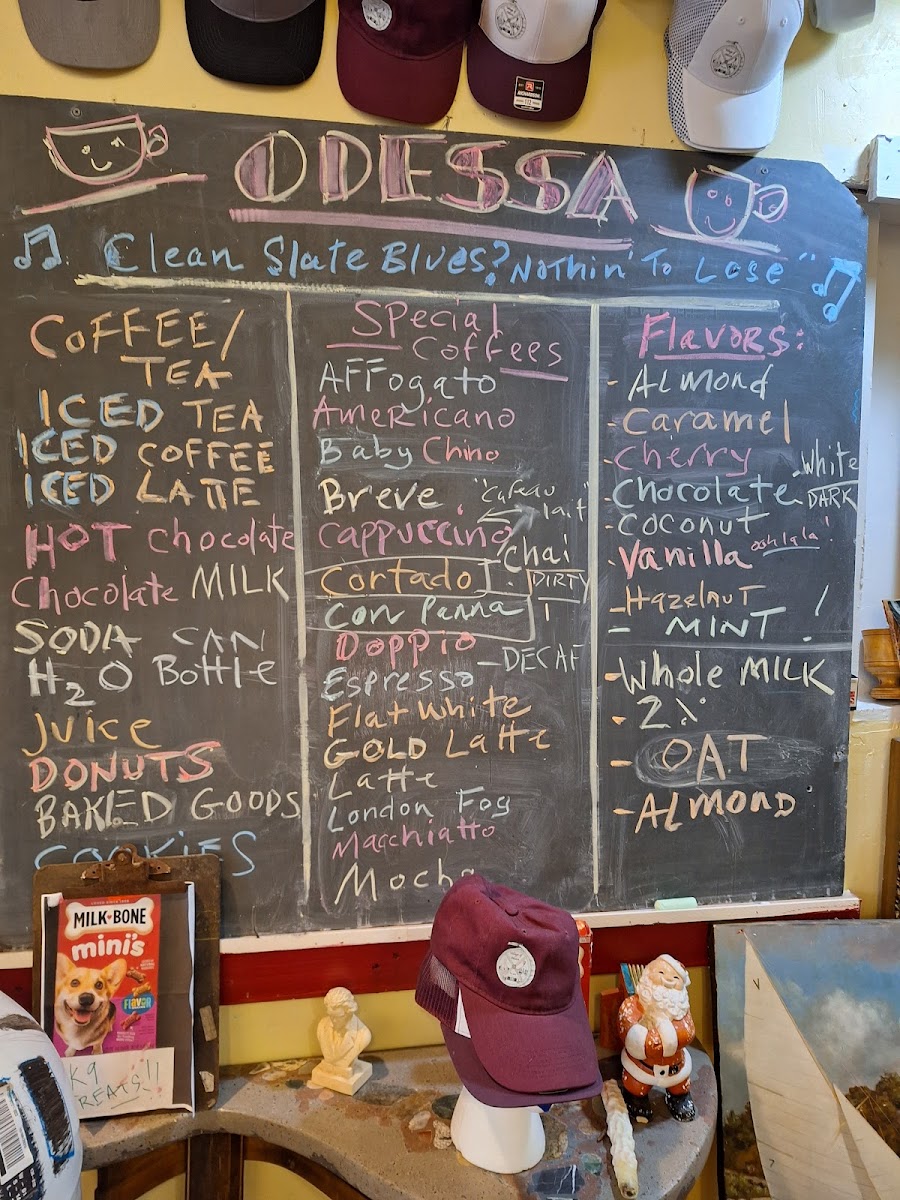 ODESSA
Clean Slate Blues? "Nothin' To Lose"
COFFEE/
TEA
ICED TEA
ICED COFFEE
ICED LATTE
HOT chocolate
Chocolate MILK
SODA CAN
H2O Bottle
JUICE
DONUTS
BAKED GOODS
COOKIES
Special
Coffees
AFFogato
Americano
Baby Chino
Breve
"cafeau
lait"
Cappuccino
Chai
DIRTY
Cortado
Con Panna
Doppio
- DECAF
Espresso
Flat White
GOLD Latte
Latte
London Fog
Macchiatto
Mocha
Flavors:
- Almond
- Caramel
- Cherry
- Chocolate
- White
DARK
- Coconut
- Vanilla ooh lala!
- Hazelnut
- MINT!
- Whole MILK
- 2%
- OAT
- ALMOND
MILK-BONE
mini's
FLAVOR
K9
TREATS!!